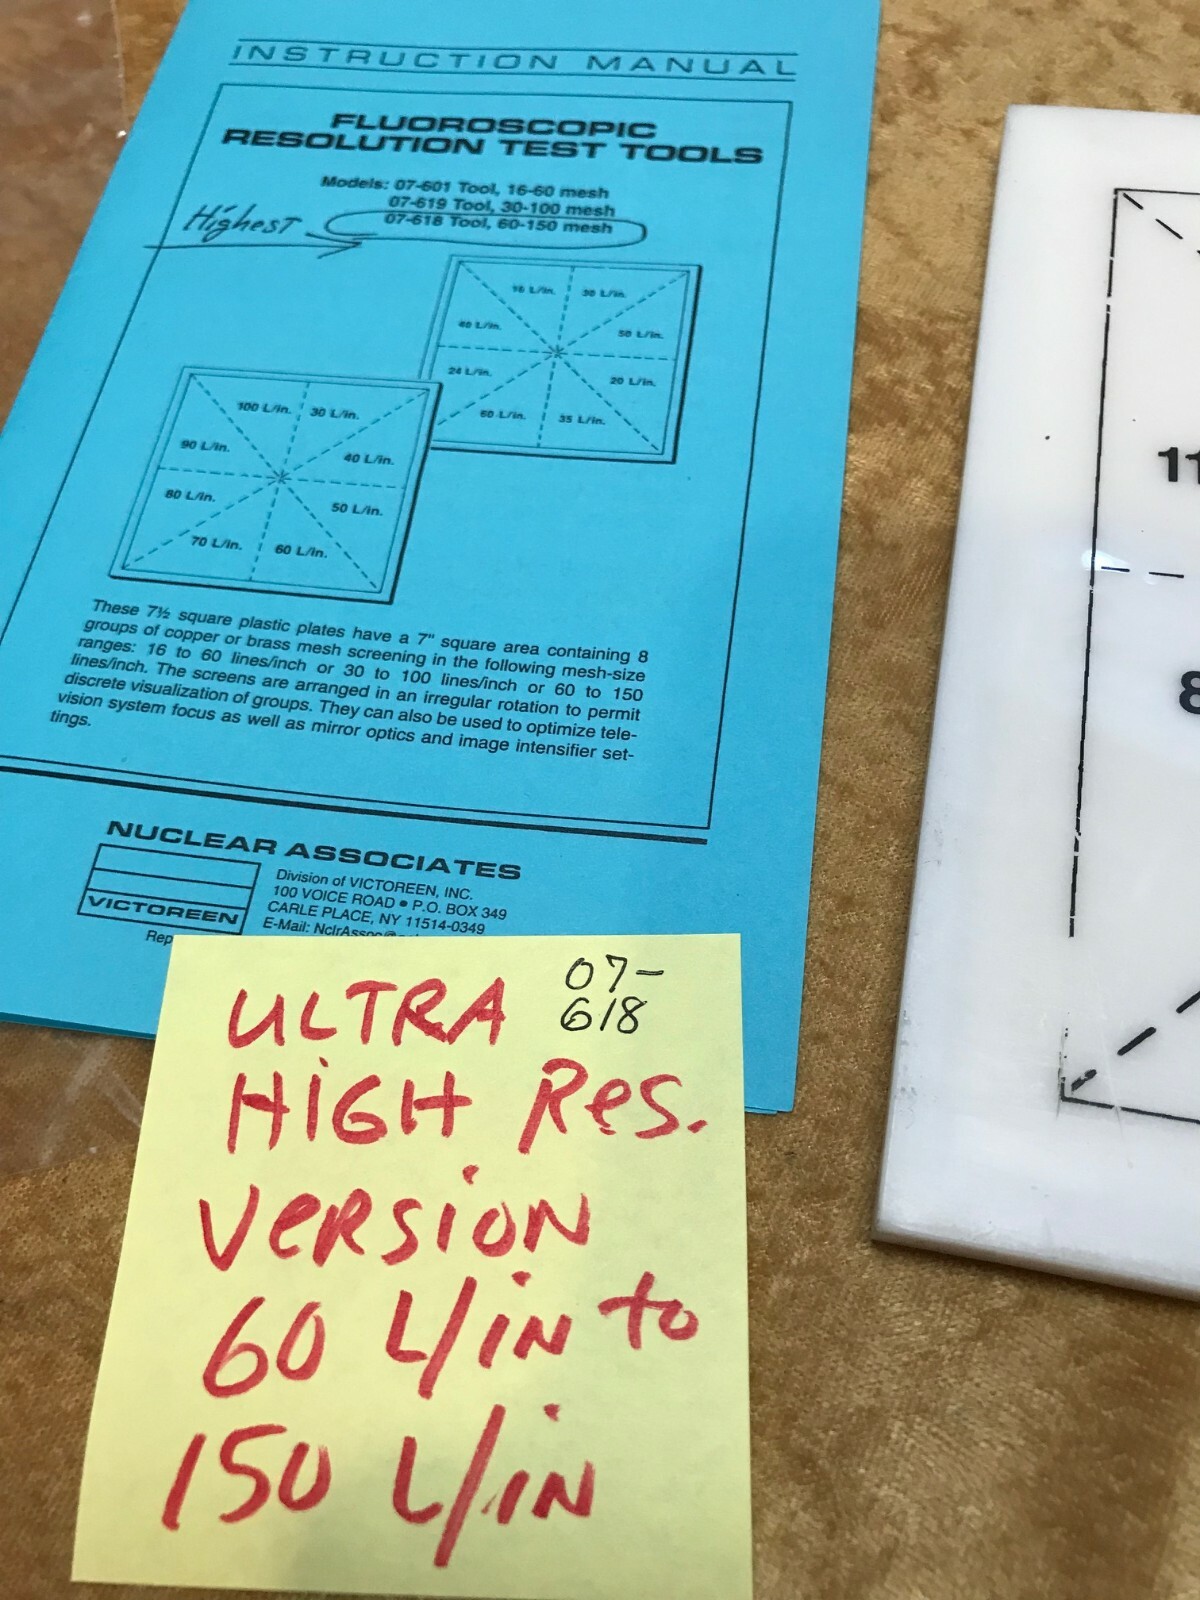 INSTRUCTION MANUAL
FLUOROSCOPIC
RESOLUTION TEST TOOLS
Models: 07-601 Tool, 16-60 mesh
07-619 Tool, 30-100 mesh
07-618 Tool, 60-150 mesh
Highest
16 L/in. 30 L/in.
40 L/in. 50 L/in.
24 L/in. 20 L/in.
60 L/in. 35 L/in.
100 L/in. 30 L/in.
90 L/in. 40 L/in.
80 L/in. 50 L/in.
70 L/in. 60 L/in.
These 7½ square plastic plates have a 7" square area containing 8
groups of copper or brass mesh screening in the following mesh-size
ranges: 16 to 60 lines/inch or 30 to 100 lines/inch or 60 to 150
lines/inch. The screens are arranged in an irregular rotation to permit
discrete visualization of groups. They can also be used to optimize tele-
vision system focus as well as mirror optics and image intensifier set-
tings.
NUCLEAR ASSOCIATES
VICTOREEN
Division of VICTOREEN, INC.
100 VOICE ROAD • P.O. BOX 349
CARLE PLACE, NY 11514-0349
E-Mail:
07-
618
ULTRA
HIGH Res.
VERSION
60 L/IN to
150 L/IN
11
8